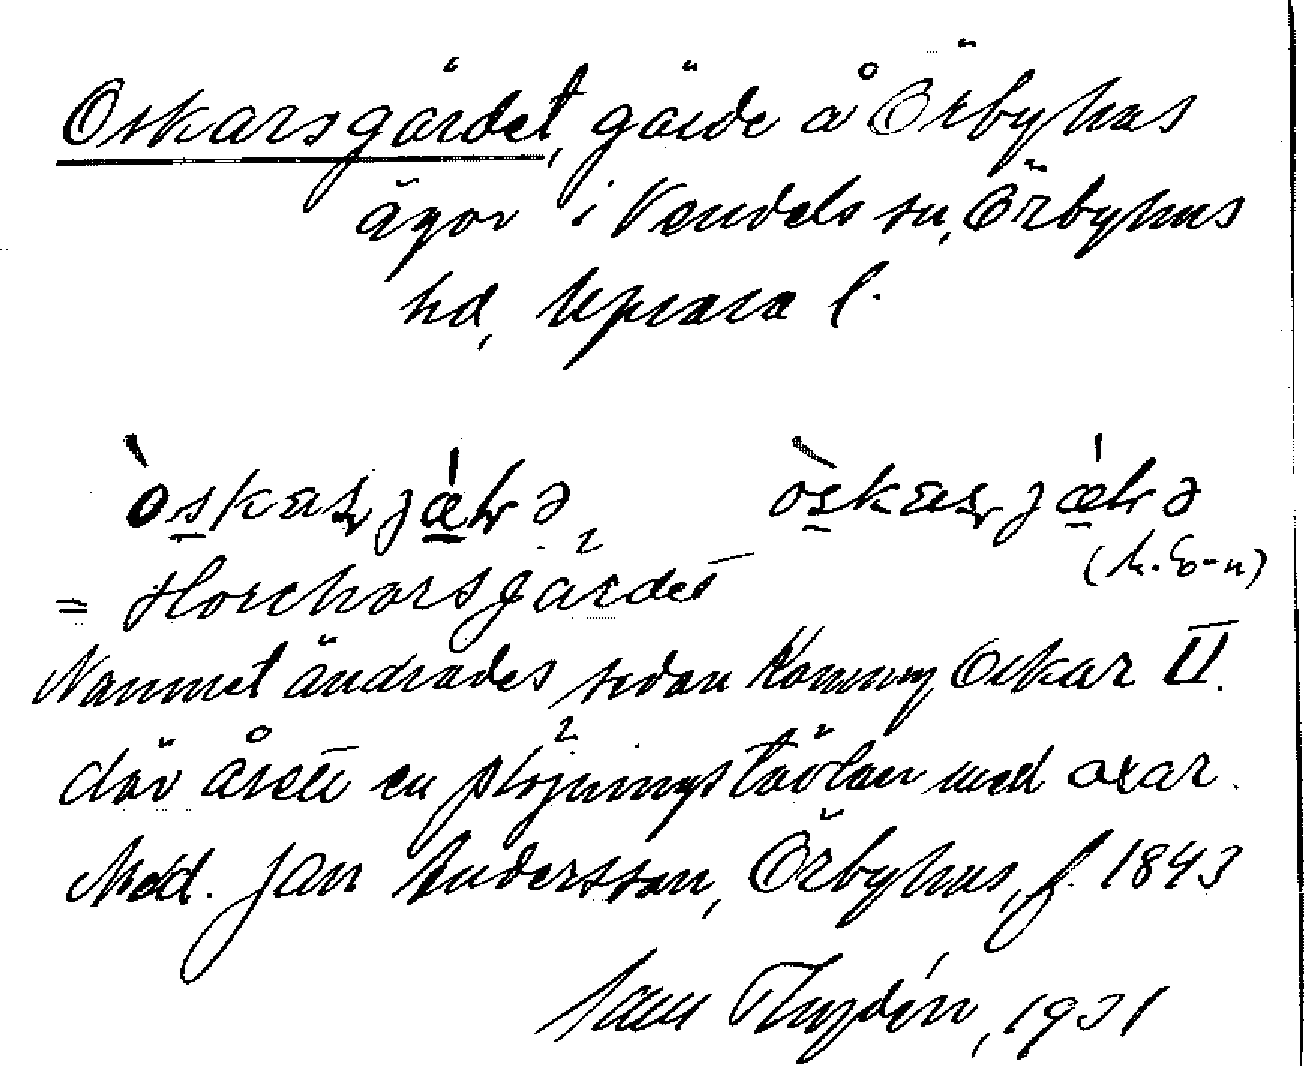 Oskarsgärdet, gärde å Örbyhus
ägor i Vendels sn, Örbyhus
hd, Upsala l.
= Horchorsgärdet
Namnet ändrades sedan Konung Oskar II.
där åsett en plöjningstävlan med oxar.
Medd. Jan Andersson, Örbyhus, f. 1843
1931